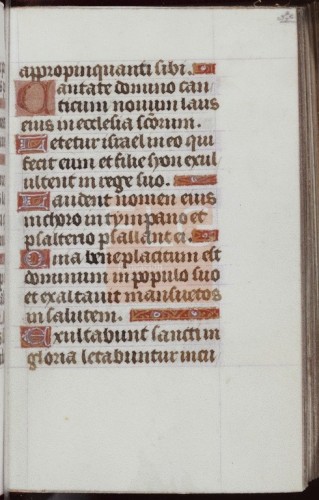 appropinquanti sibi.
Cantate domino can
ticum nouum laus
eius in ecclesia sc̄orum.
Letetur israel in eo qui
fecit eum et filie syon exul
ultent in rege suo.
Laudent nomen eius
in choro in tympano et
psalterio psallant ei.
Quia beneplacitum est
domino in populo suo
et exaltauit mansuetos
in salutem.
Exultabunt sancti in
gloria letabuntur in cu